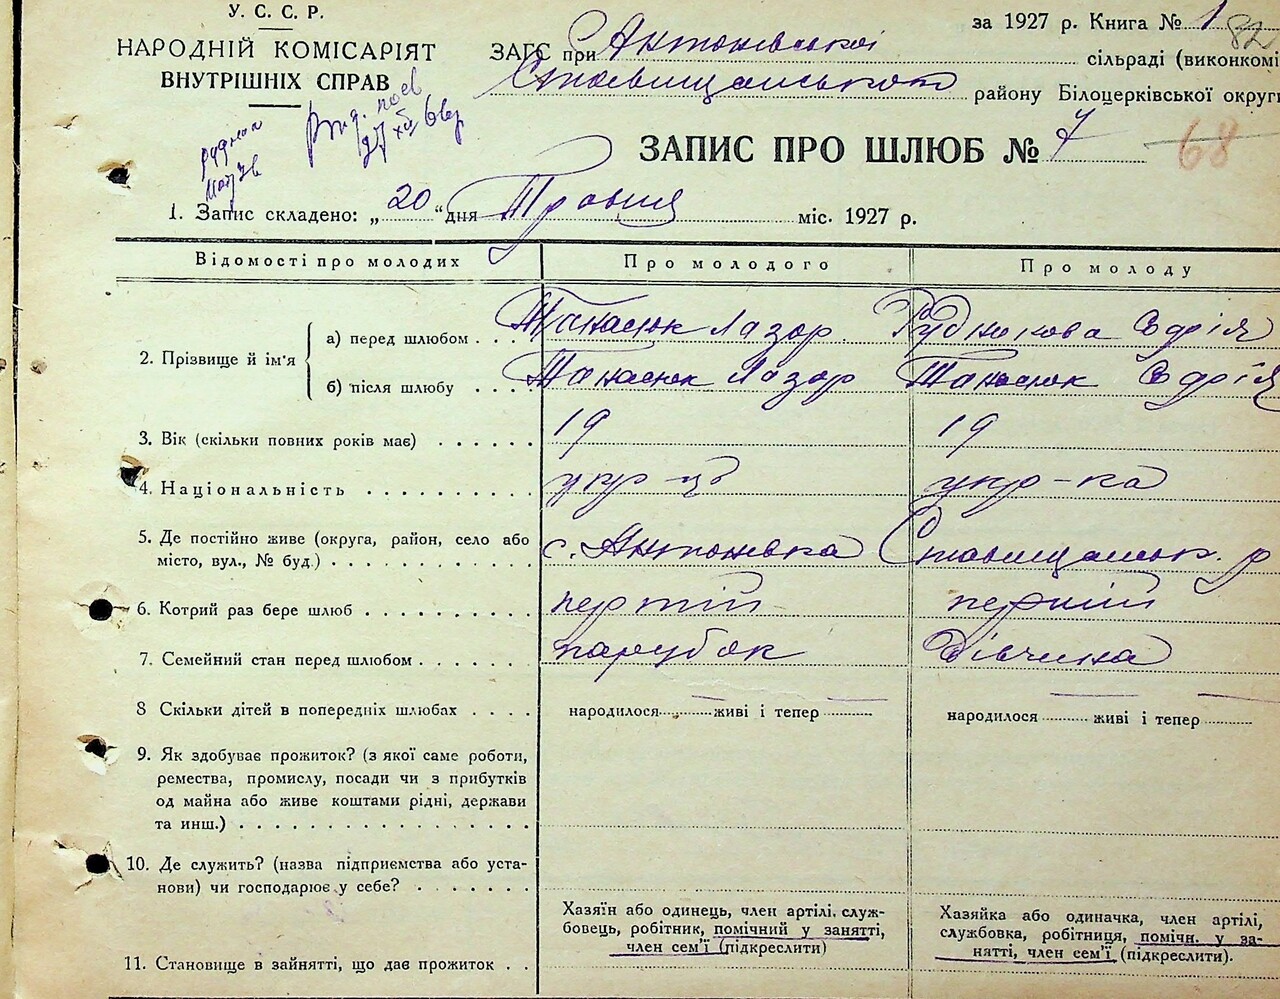 У. С. С. Р.
НАРОДНІЙ КОМІСАРІЯТ
ВНУТРІШНІХ СПРАВ
за 1927 р. Книга № 1
82
ЗАГС при Антонівській сільраді (виконкомі
Ставищанського району Білоцерківської округи
ЗАПИС ПРО ШЛЮБ № 7
68
1. Запис складено: „20“ дня Травня міс. 1927 р.
Відомості про молодих Про молодого Про молоду
2. Прізвище й ім'я
а) перед шлюбом Танасюк Лазор Руднікова Єдрія
б) після шлюбу Танасюк Лазор Танасюк Єдрія
3. Вік (скільки повних років має) 19 19
4. Національність укр-ць укр-ка
5. Де постійно живе (округа, район, село або
місто, вул., № буд.) с. Антонівка Ставищанськ. р
6. Котрий раз бере шлюб перший перший
7. Семейний стан перед шлюбом парубок дівчина
8 Скільки дітей в попередніх шлюбах народилося живі і тепер народилося живі і тепер
9. Як здобуває прожиток? (з якої саме роботи,
ремества, промислу, посади чи з прибутків
од майна або живе коштами рідні, держави
та инш.)
10. Де служить? (назва підприємства або уста-
нови) чи господарює у себе?
11. Становище в зайнятті, що дає прожиток
Хазяїн або одинець, член артілі, служ-
бовець, робітник, помічний у занятті,
член сем'ї (підкреслити)
Хазяйка або одиначка, член артілі,
службовка, робітниця, помічн. у за-
нятті, член сем'ї (підкреслити).